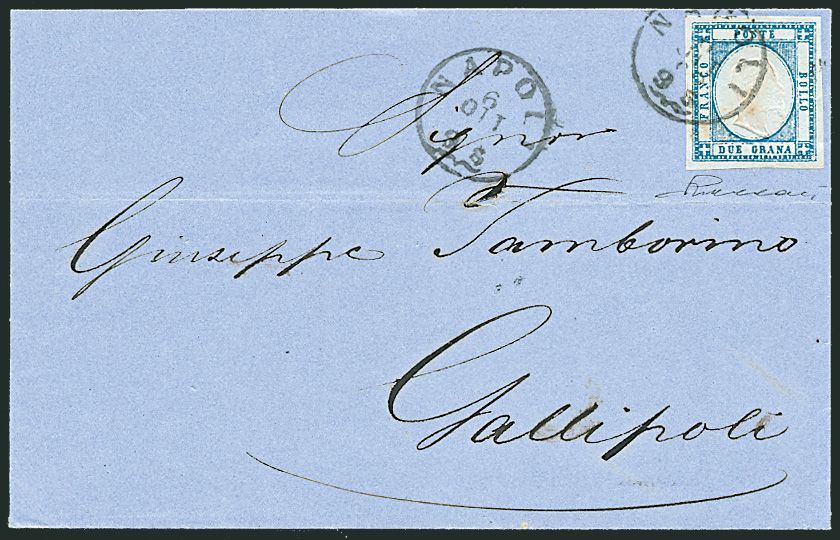 NAPOLI
6
OTT
POSTE
FRANCO
BOLLO
DUE GRANA
Signor
Giuseppe Tamborino
Gallipoli